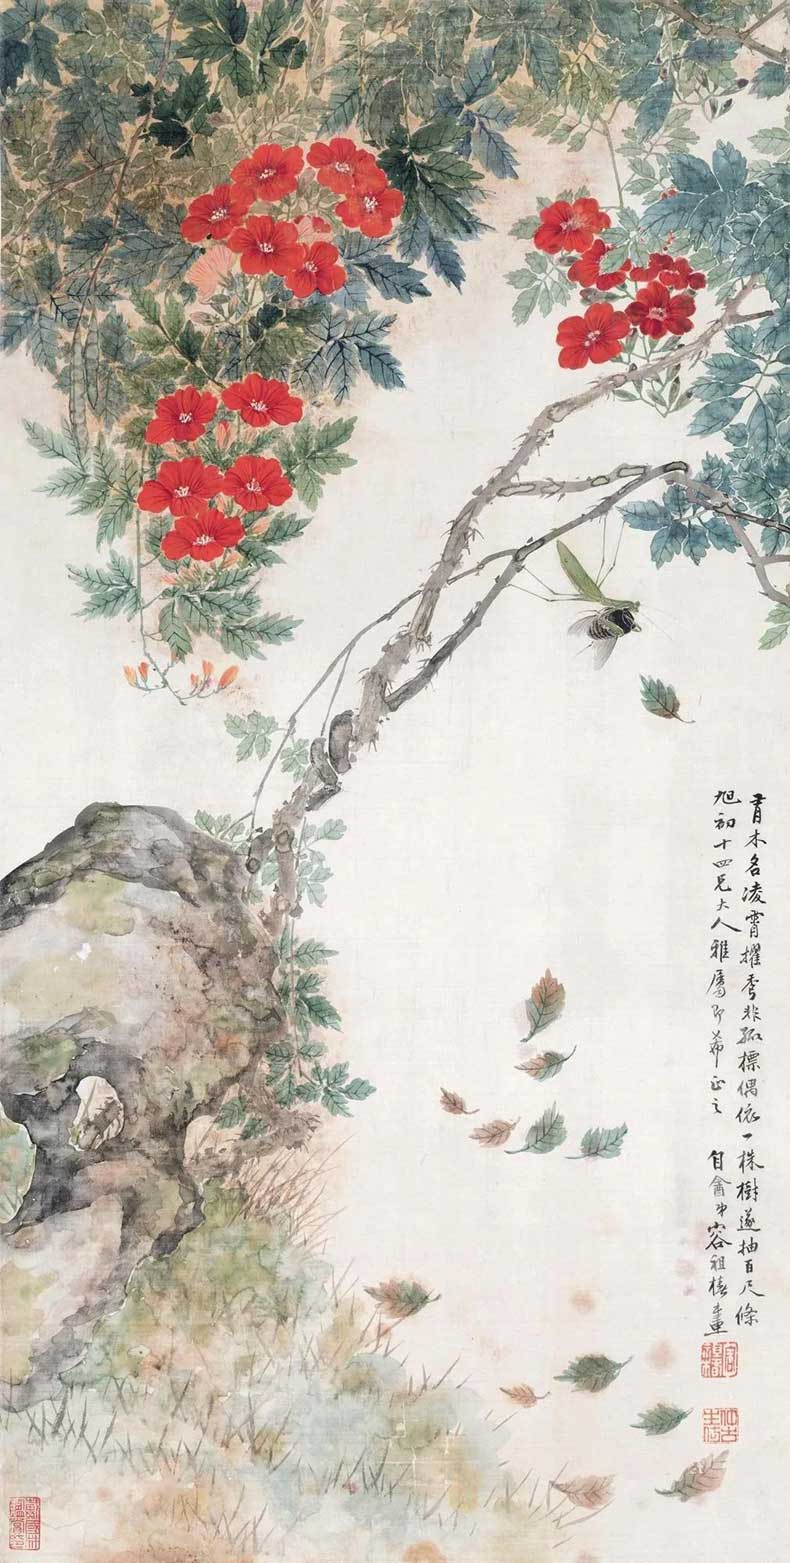 有木名凌霄擢秀非孤標偶依一株樹遂抽百尺條
旭初十四兄大人雅屬即希正之 自弟容祖椿畫
容祖椿